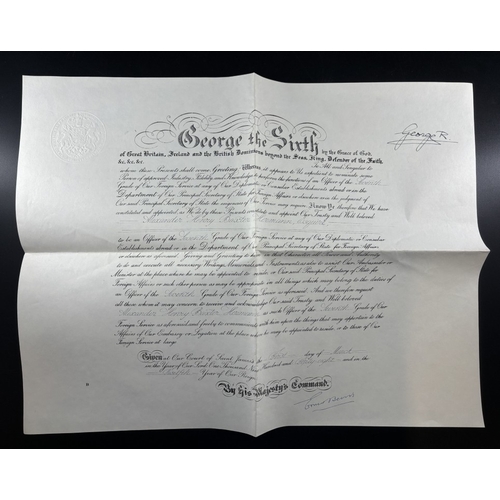 George the Sixth
by the Grace of God,
George R.
of Great Britain, Ireland and the British Dominions beyond the Seas, King, Defender of the Faith,
&c, &c, &c.
To All and Singular to
whom these Presents shall come, Greeting. Whereas it appears to Us expedient to nominate some
Person of approved Industry, Fidelity and Knowledge to perform the functions of an Officer of the
Grade of Our Foreign Service at any of Our Diplomatic or Consular Establishments abroad or in the
Department of Our Principal Secretary of State for Foreign Affairs or elsewhere as in the judgment of
Our said Principal Secretary of State the exigencies of Our Service may require Now Know Ye that We have
constituted and appointed as We do by these Presents constitute and appoint Our Trusty and Well beloved
Alexander Henry
to be an Officer of the Grade of Our Foreign Service at any of Our Diplomatic or Consular
Establishments abroad or in the Department of Our Principal Secretary of State for Foreign Affairs
or elsewhere as aforesaid Giving and Granting to him in that Character all Power and Authority
to do and execute all necessary Writings, Memorials and Instruments also to assist Our Ambassador or
Minister at the place where he may be appointed to reside or Our said Principal Secretary of State for
Foreign Affairs or such other person as may be appointed in all things which may belong to the duties of
an Officer of the Grade of Our Foreign Service as aforesaid. And We therefore request
all those whom it may concern to receive and acknowledge Our said Trusty and Well beloved
Alexander Henry as such Officer of the Grade of Our
Foreign Service as aforesaid and freely to communicate with him upon the things that may appertain to the
Affairs of Our Embassy or Legation at the place where he may be appointed to reside or to those of Our
Foreign Service at large
Given at Our Court of Saint James's the day of
in the Year of Our Lord One Thousand Nine Hundred and and in the
Year of Our Reign
By His Majesty's Command,
Ernest Bevin